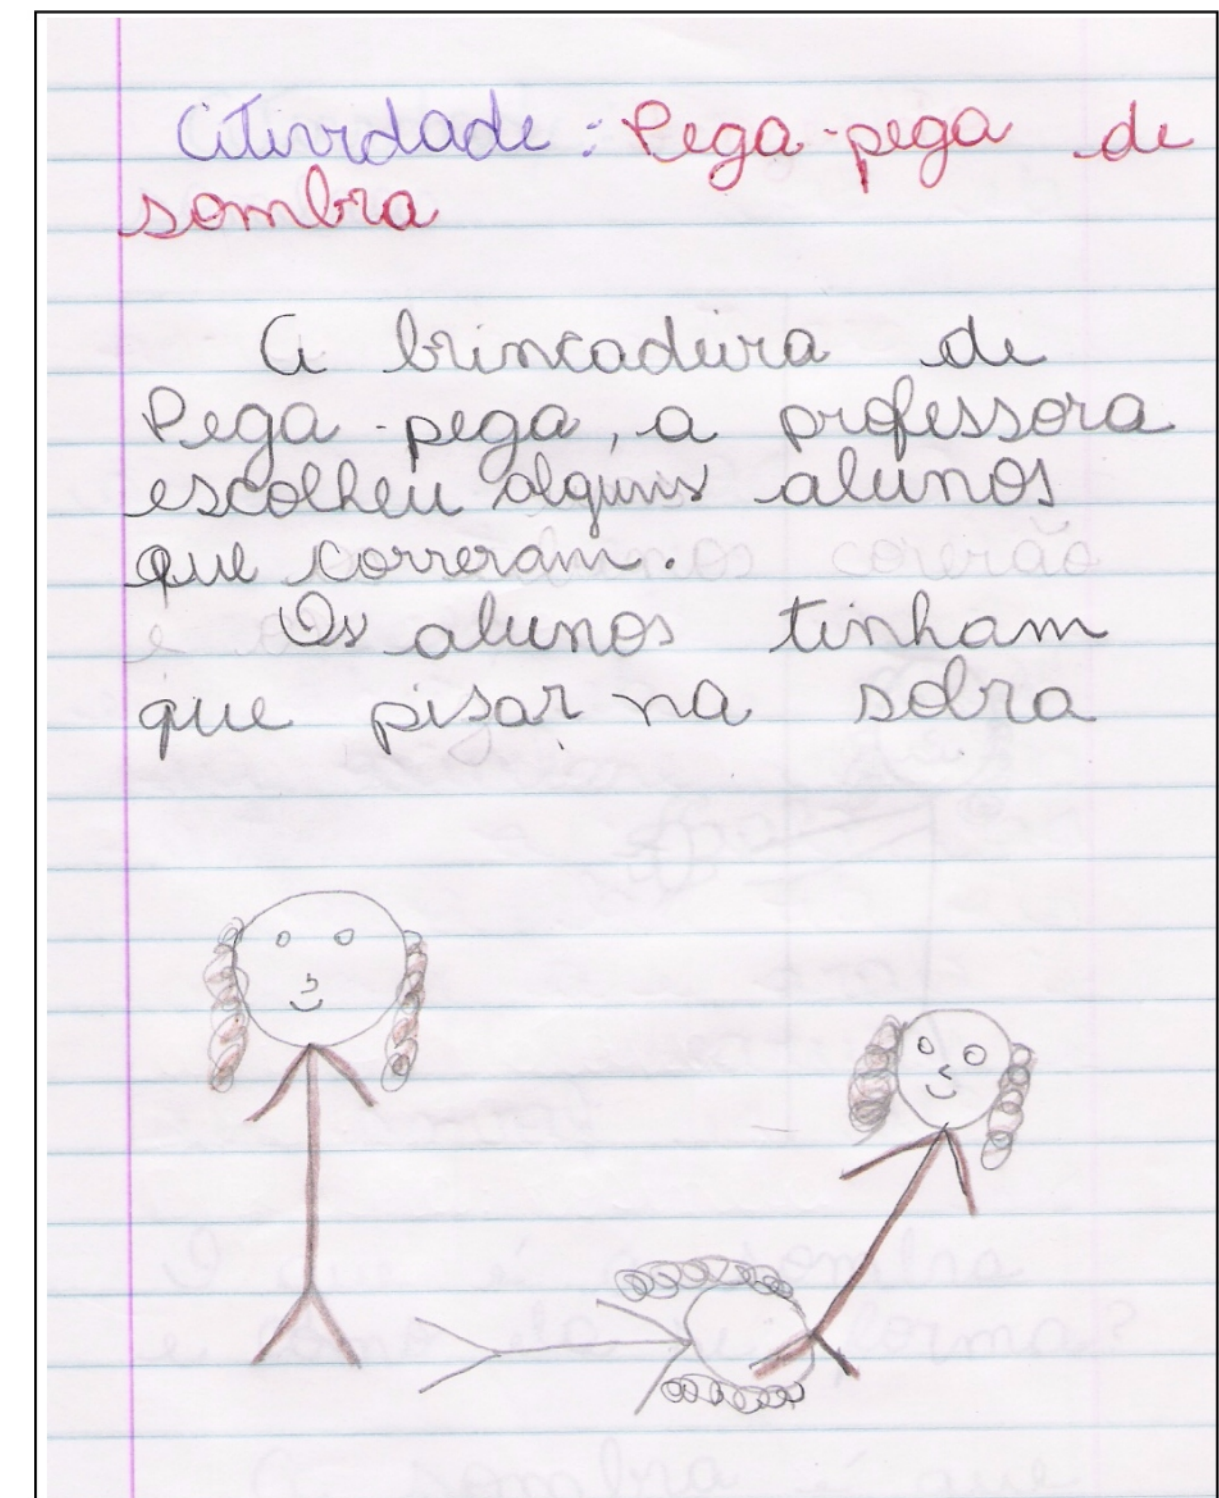 Atividade: Pega-pega de
sombra
A brincadeira de
Pega-pega, a professora
escolheu alguns alunos
que correram.
Os alunos tinham
que pisar na sobra